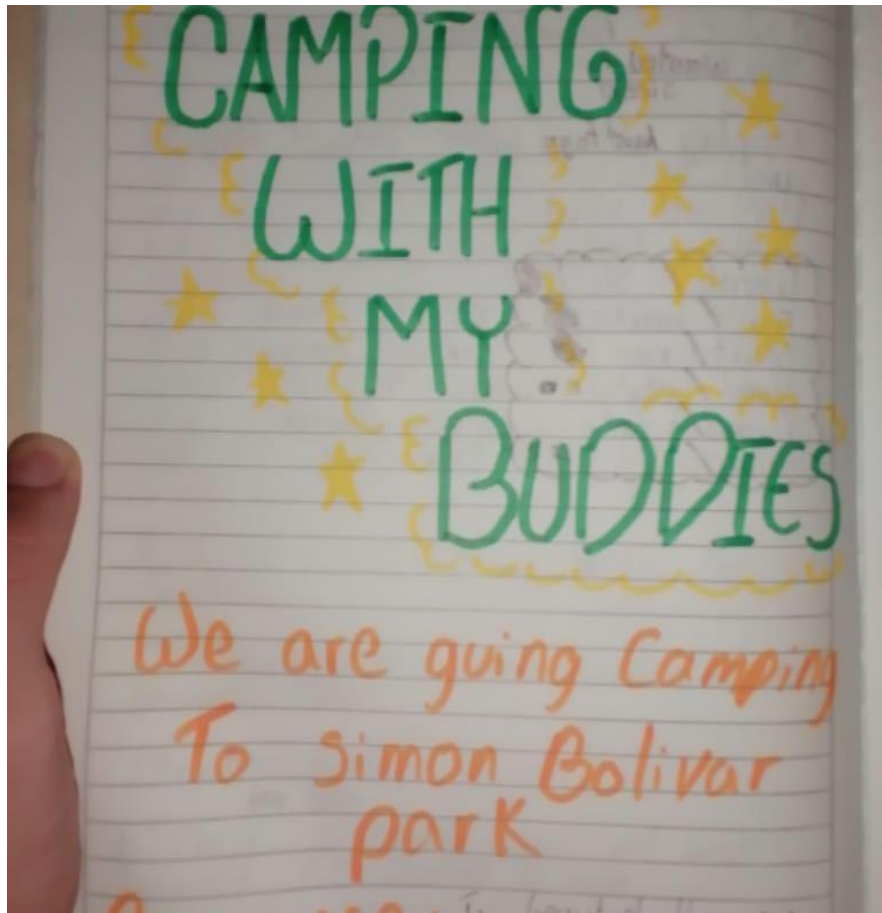 CAMPING
WITH
MY
BUDDIES
We are guing Camping
To Simon Bolivar
park